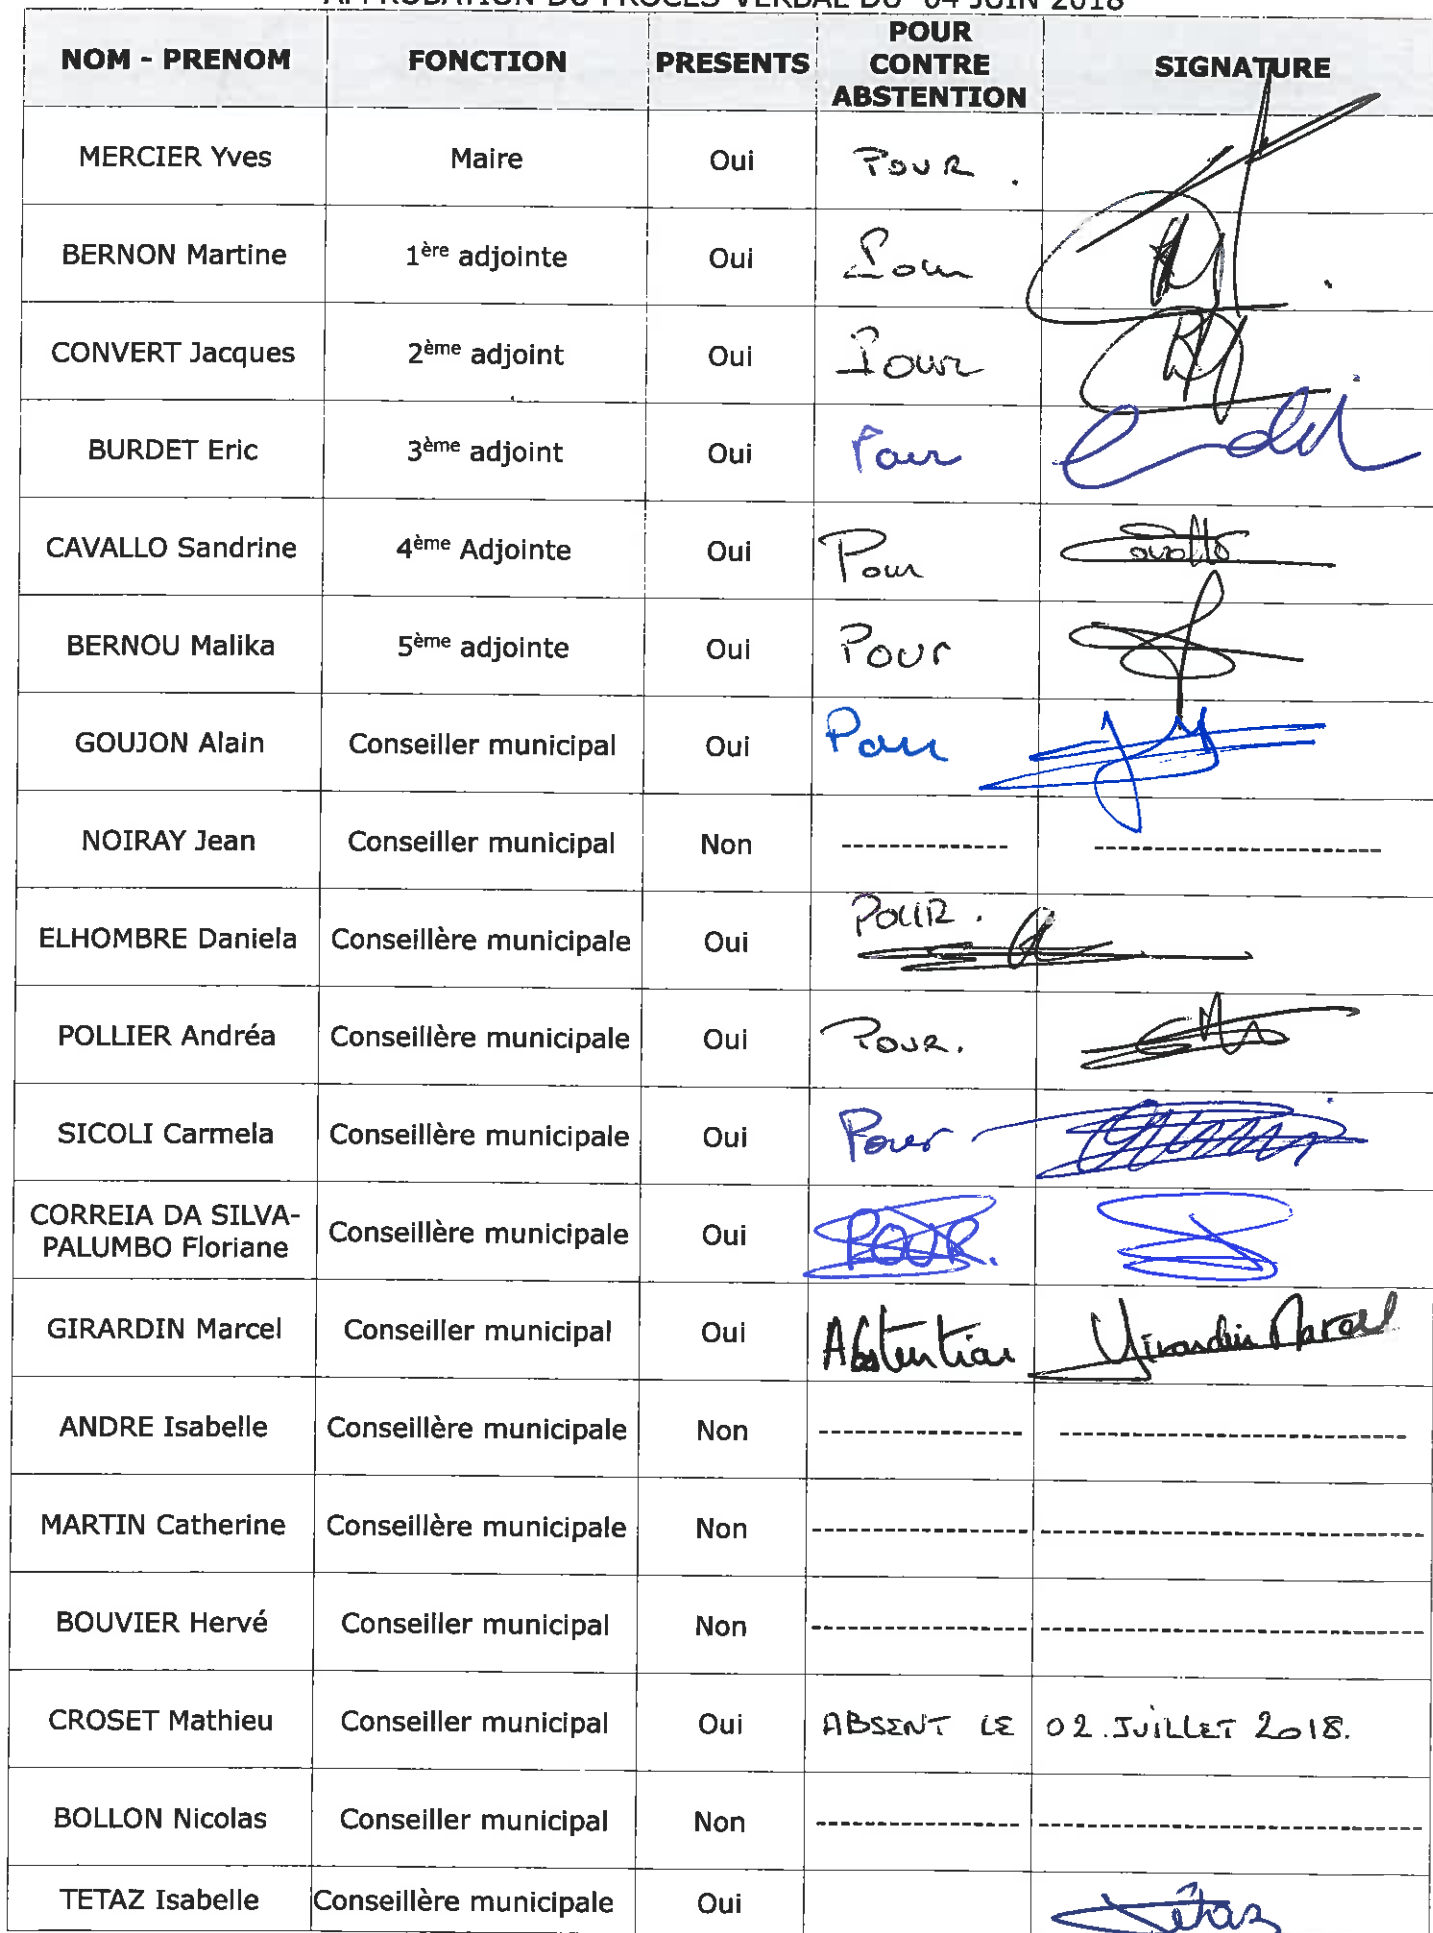 APPROBATION DU PROCES VERBAL DU 04 JUIN 2018
NOM - PRENOM FONCTION PRESENTS POUR CONTRE ABSTENTION SIGNATURE
MERCIER Yves Maire Oui POUR.
BERNON Martine 1ère adjointe Oui Pour
CONVERT Jacques 2ème adjoint Oui Pour
BURDET Eric 3ème adjoint Oui Pour
CAVALLO Sandrine 4ème Adjointe Oui Pour Cavallo
BERNOU Malika 5ème adjointe Oui Pour
GOUJON Alain Conseiller municipal Oui Pour
NOIRAY Jean Conseiller municipal Non ------------ --------------------
ELHOMBRE Daniela Conseillère municipale Oui POUR.
POLLIER Andréa Conseillère municipale Oui Pour.
SICOLI Carmela Conseillère municipale Oui Pour
CORREIA DA SILVA-
PALUMBO Floriane Conseillère municipale Oui POUR.
GIRARDIN Marcel Conseiller municipal Oui Abstention Girardin Marcel
ANDRE Isabelle Conseillère municipale Non -------------- ------------------------
MARTIN Catherine Conseillère municipale Non --------------- --------------------------
BOUVIER Hervé Conseiller municipal Non --------------- --------------------------
CROSET Mathieu Conseiller municipal Oui ABSENT LE 02.JUILLET 2018.
BOLLON Nicolas Conseiller municipal Non --------------- --------------------------
TETAZ Isabelle Conseillère municipale Oui Tétaz